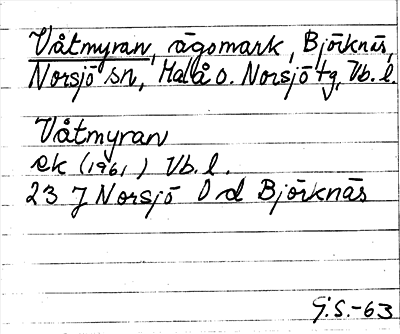 Våtmyran, ägomark, Björknäs,
Norsjö sn, Malå o. Norsjö tg, Vb. l.
Våtmyran
ek (1961) Vb. l.
23 J Norsjö O d Björknäs
G.S.-63